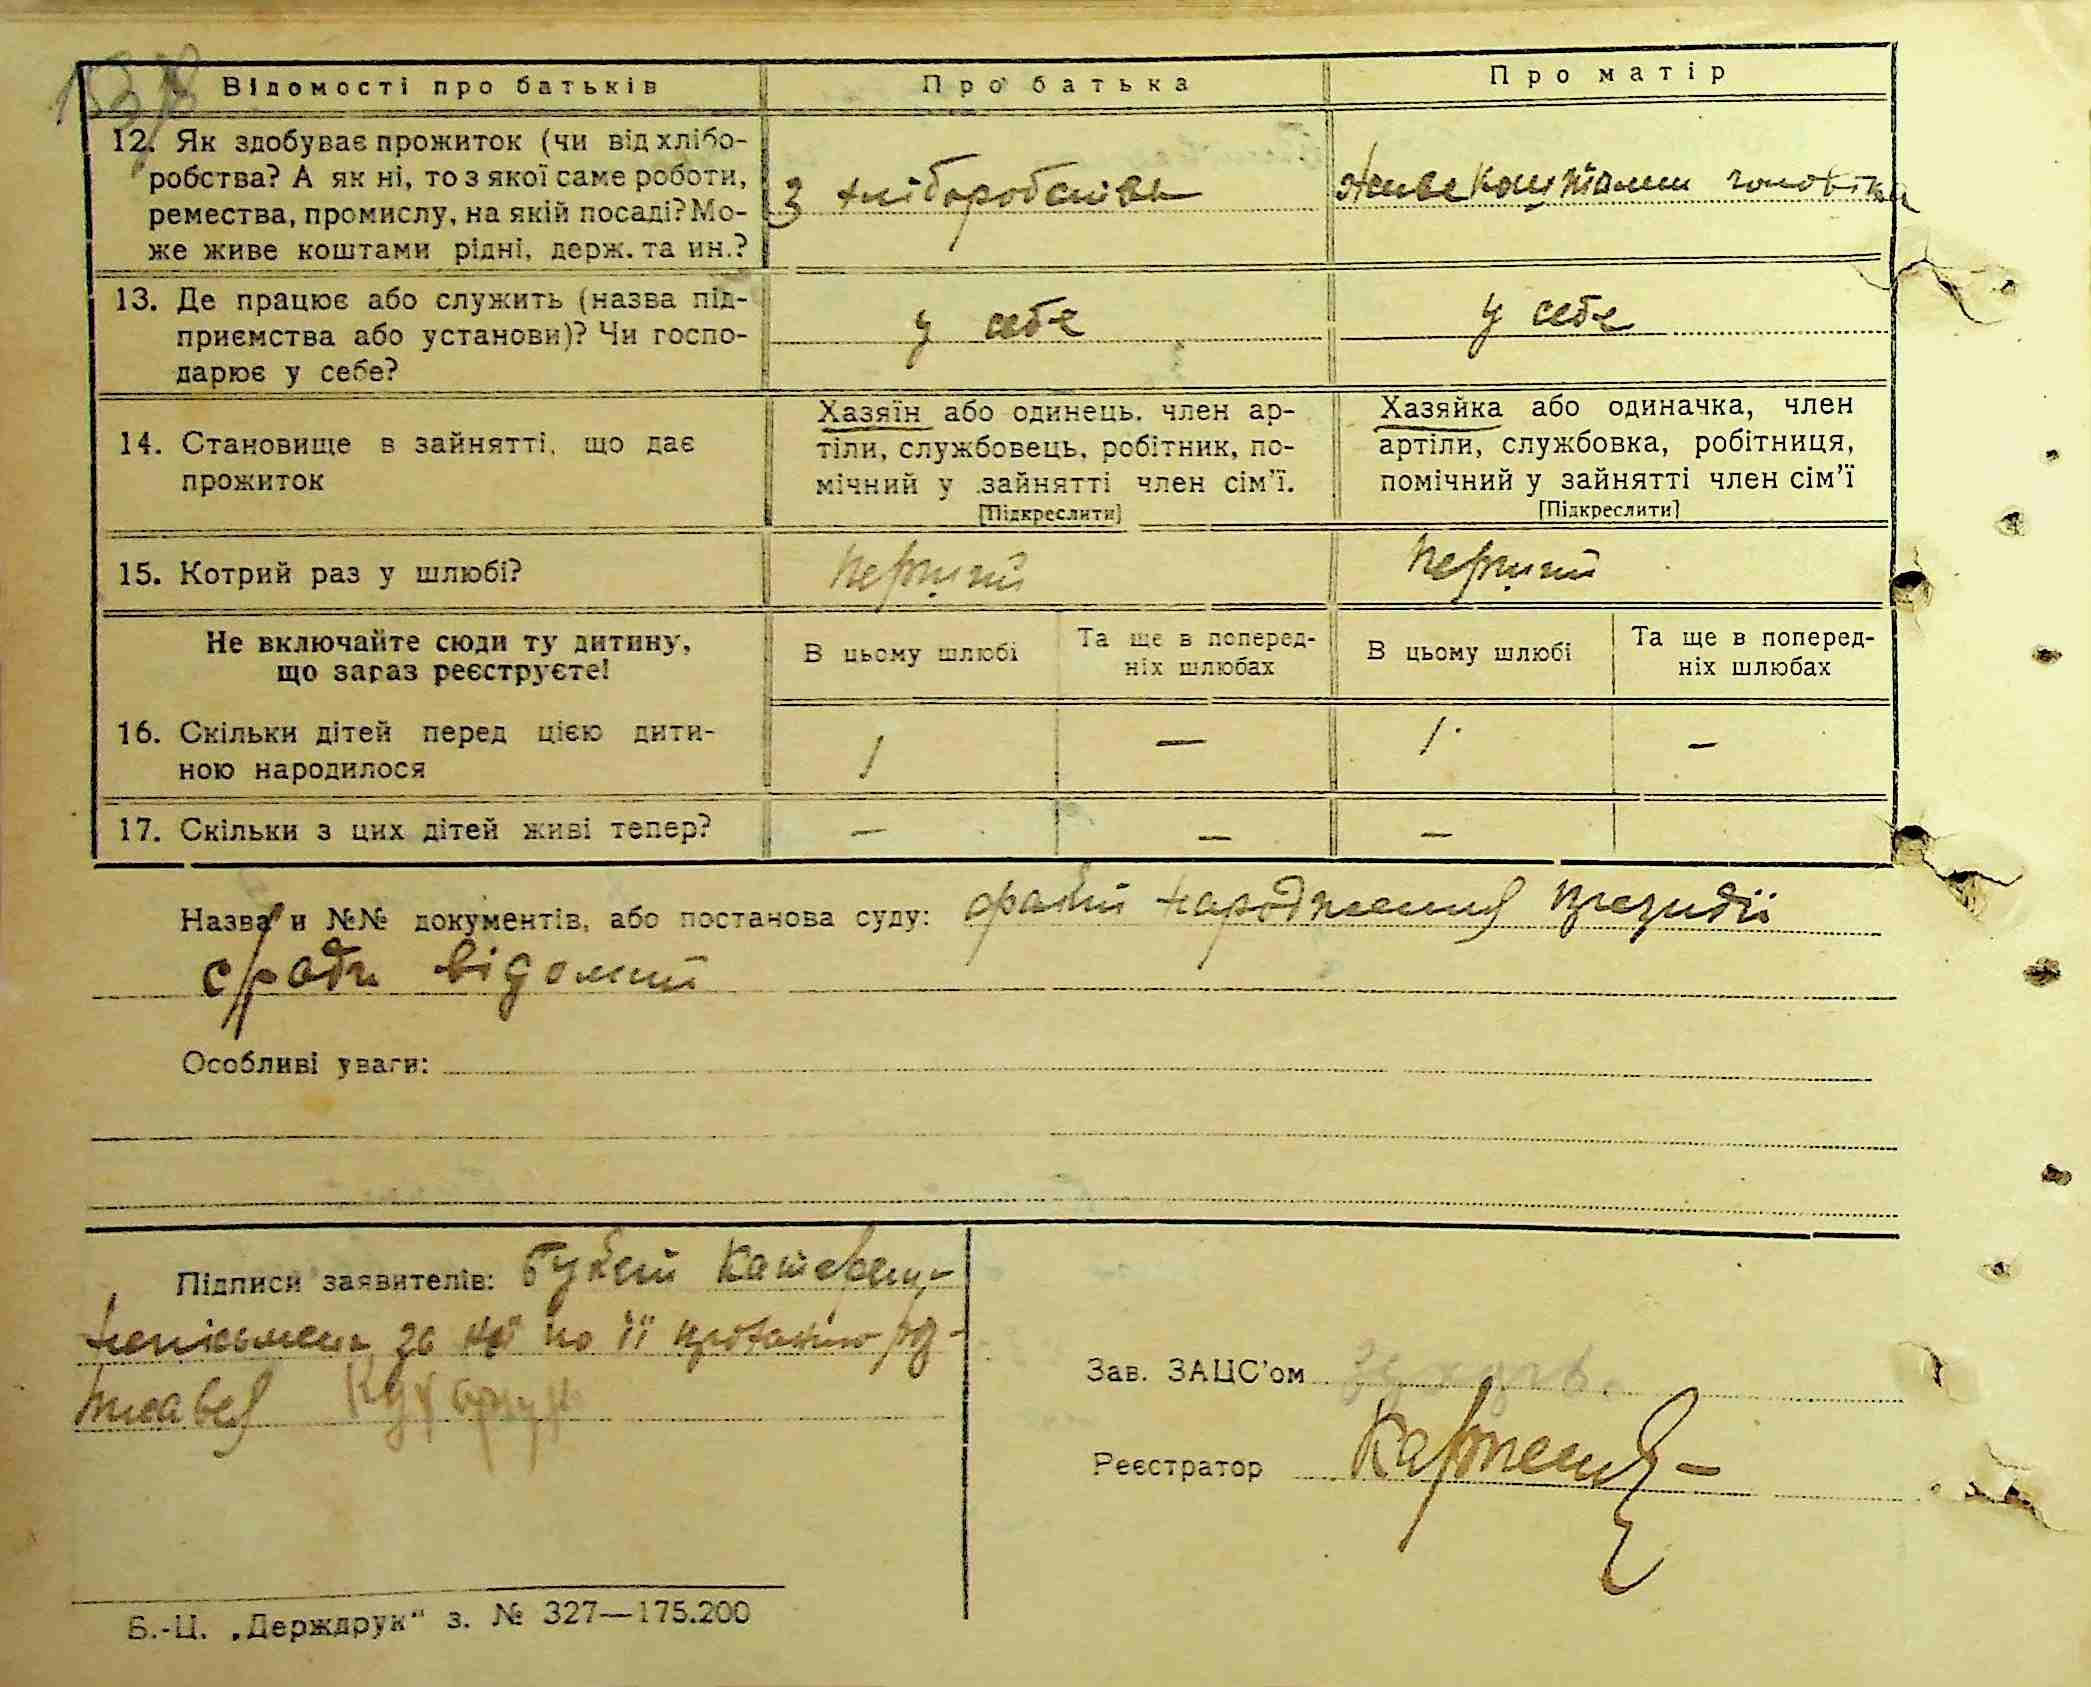 Відомості про батьків
Про батька
Про матір
12. Як здобуває прожиток (чи від хлібо-
робства? А як ні, то з якої саме роботи,
ремества, промислу, на якій посаді? Мо-
же живе коштами рідні, держ. та ин.?
З хліборобства
живе коштами чоловіка
13. Де працює або служить (назва під-
приємства або установи)? Чи госпо-
дарює у себе?
у себе
у себе
14. Становище в зайнятті, що дає
прожиток
Хазяїн або одинець, член ар-
тіли, службовець, робітник, по-
мічний у зайнятті член сім'ї.
[Підкреслити]
Хазяйка або одиначка, член
артіли, службовка, робітниця,
помічний у зайнятті член сім'ї
[Підкреслити]
15. Котрий раз у шлюбі?
перший
перший
Не включайте сюди ту дитину,
що зараз реєструєте!
В цьому шлюбі
Та ще в поперед-
ніх шлюбах
В цьому шлюбі
Та ще в поперед-
ніх шлюбах
16. Скільки дітей перед цією дити-
ною народилося
1
—
1
—
17. Скільки з цих дітей живі тепер?
—
—
—
Назва и №№ документів, або постанова суду: факт народження президії
с/ради відомий
Особливі уваги:
Підписи заявителів:
за неї по її проханню роз-
писався
Зав. ЗАЦС'ом
Реєстратор
Б.-Ц. „Держдрук" з. № 327—175.200